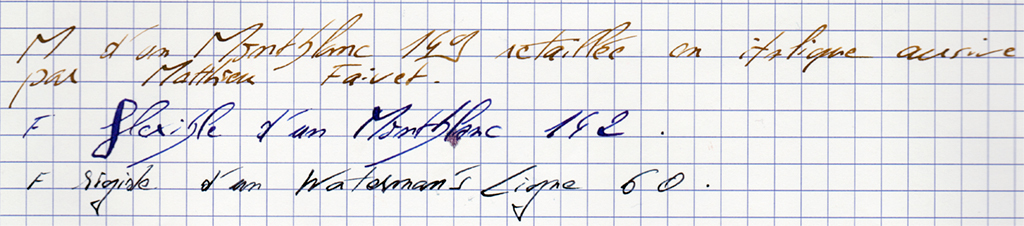 M d'un Montblanc 149 retaillée en italique cursive
par Matthieu Faivet.
F flexible d'un Montblanc 142.
F rigide d'un Waterman's Ligne 60.